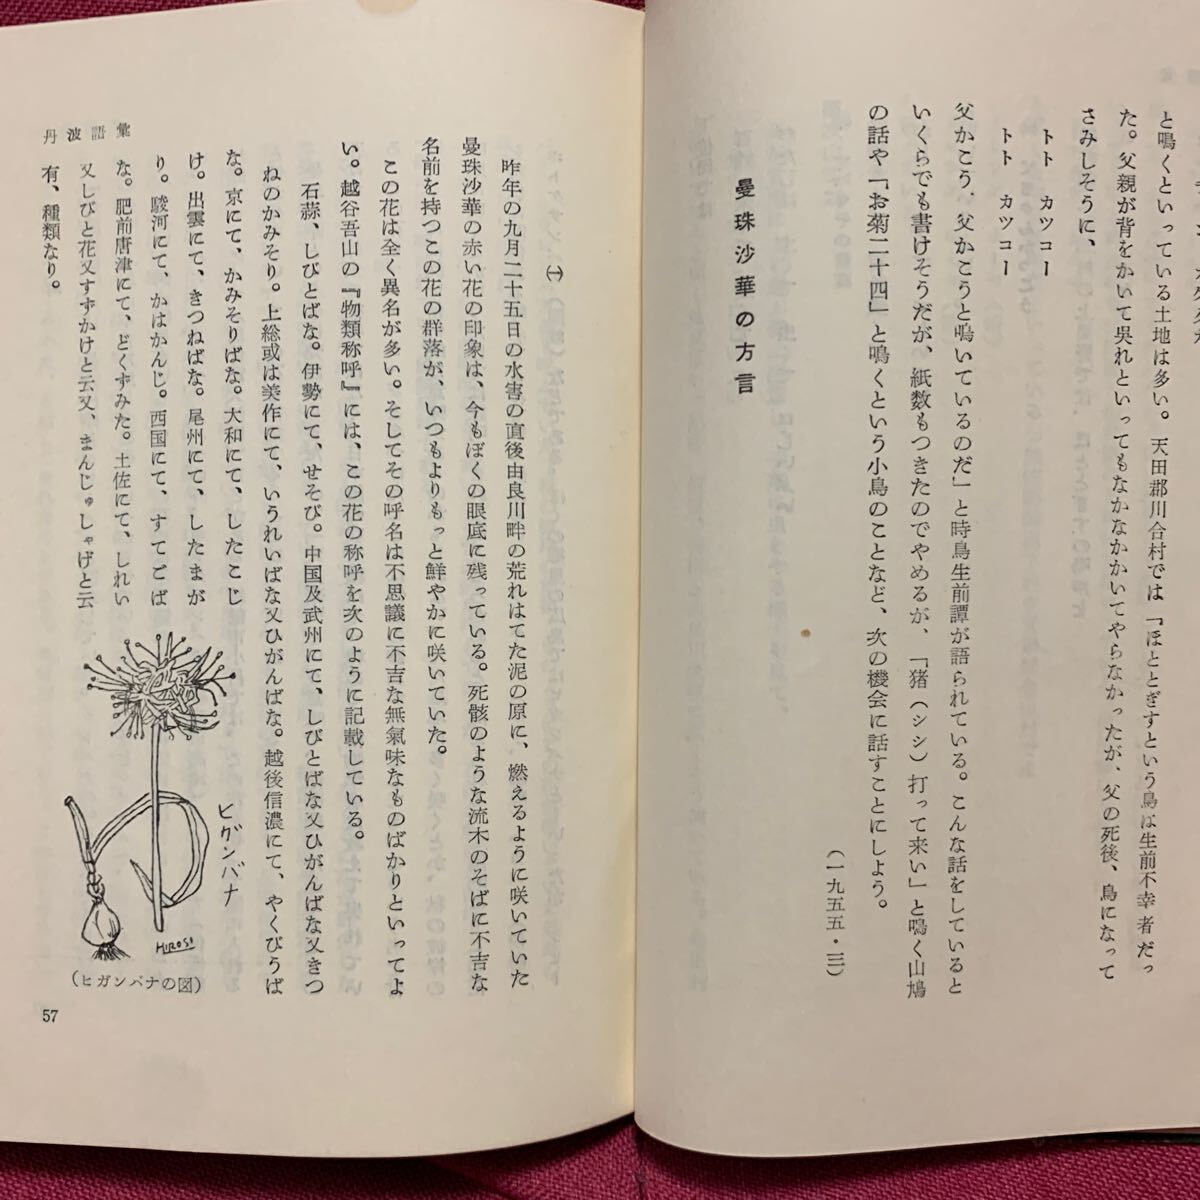 と鳴くといっている土地は多い。天田郡川合村では「ほととぎすという鳥は生前不幸者だっ
た。父親が背をかいて呉れといってもなかなかいてやらなかったが、父の死後、鳥になって
さみしそうに、
トト カツコー
トト カツコー
父かこう、父かこうと鳴いているのだ」と時鳥生前譚が語られている。こんな話をしていると
いくらでも書けそうだが、紙数もつきたのでやめるが、「猪（シシ）打って来い」と鳴く山鳩
の話や「お菊二十四」と鳴くという小鳥のことなど、次の機会に話すことにしよう。
（一九五五・三）
曼珠沙華の方言
(一)
昨年の九月二十五日の水害の直後由良川畔の荒れはてた泥の原に、燃えるように咲いていた
曼珠沙華の赤い花の印象は、今もぼくの眼底に残っている。死骸のような流木のそばに不吉な
名前を持つこの花の群落が、いつもよりもっと鮮やかに咲いていた。
この花は全く異名が多い。そしてその呼名は不思議に不吉な無氣味なものばかりといってよ
い。越谷吾山の『物類称呼』には、この花の称呼を次のように記載している。
石蒜、しびとばな。伊勢にて、せそび。中国及武州にて、しびとばな又ひがんばな又きつ
ねのかみそり。上総或は美作にて、いうれいばな又ひがんばな。越後信濃にて、やくびうば
な。京にて、かみそりばな。大和にて、したこじ
け。出雲にて、きつねばな。尾州にて、したまが
り。駿河にて、かはかんじ。西国にて、すてごば
な。肥前唐津にて、どくずみた。土佐にて、しれい
又しびと花又すずかけと云又、まんじゅしゃげと云
有、種類なり。
丹波語彙
ヒガンバナ
HIROSI
（ヒガンバナの図）
57